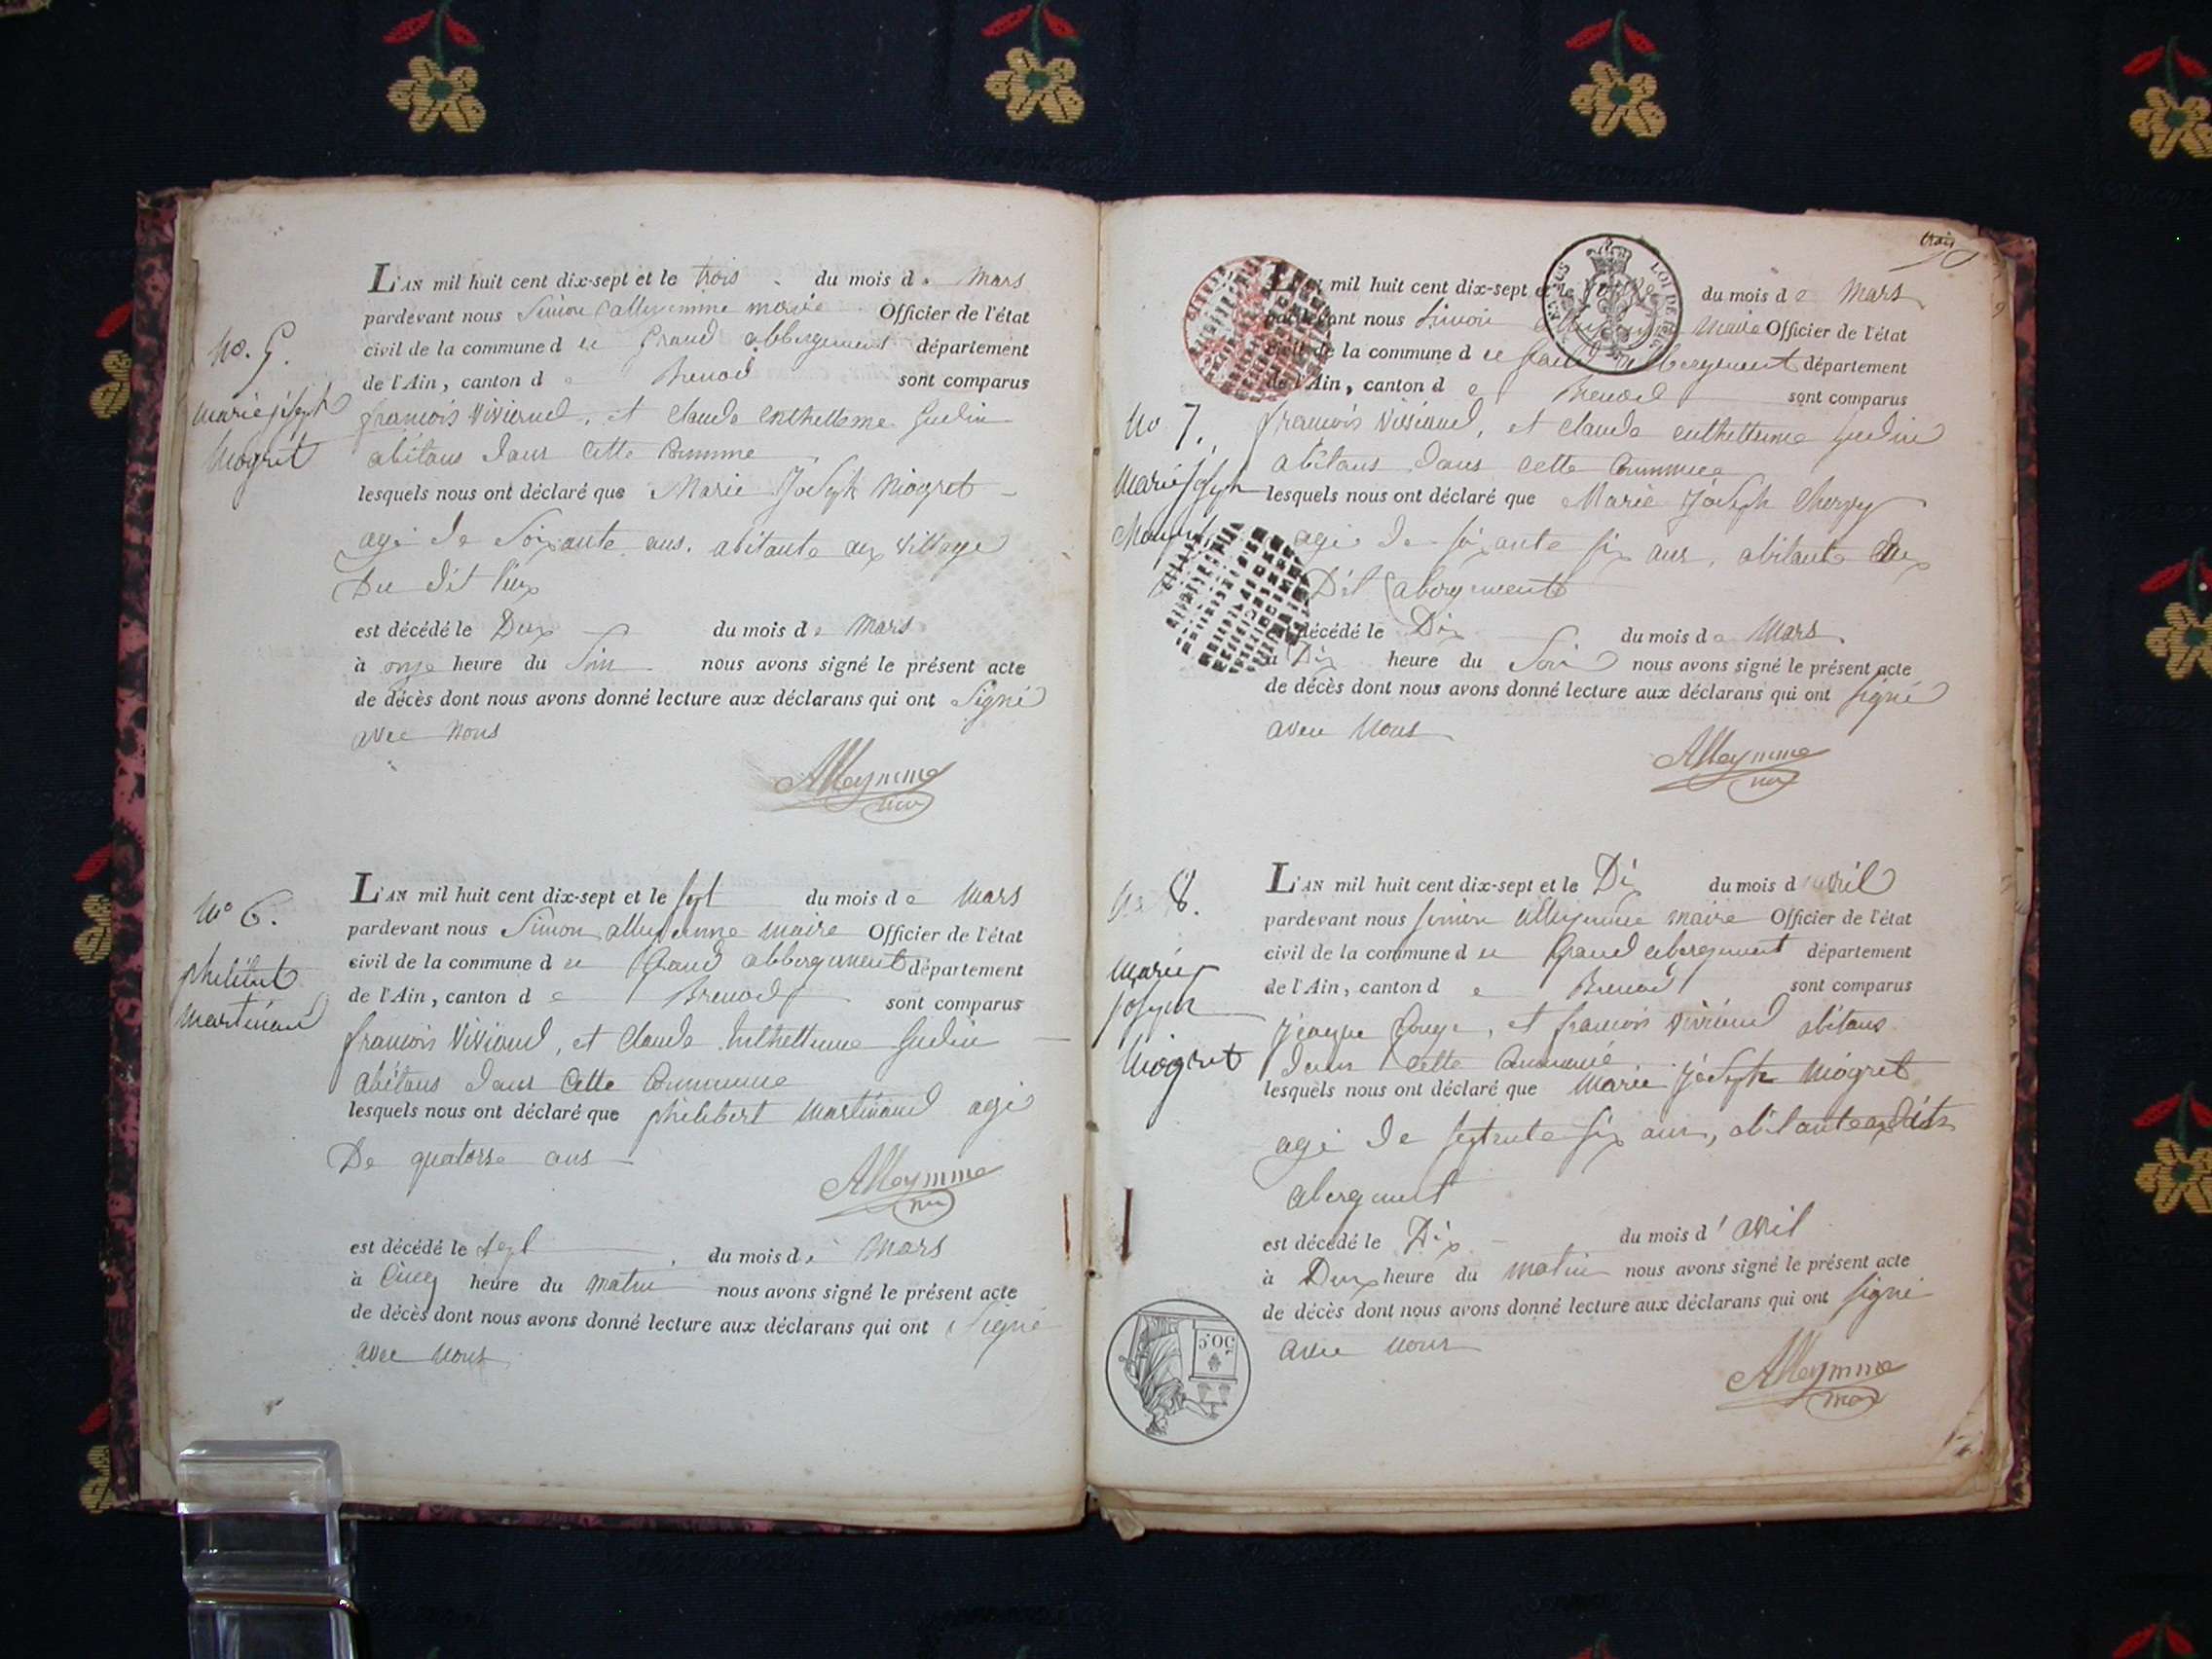 No. 5.
Marie joseph
Niogret
L'AN mil huit cent dix-sept et le trois du mois de Mars
pardevant nous Simon alleyemme maire Officier de l'état
civil de la commune d u Grand abbergement département
de l'Ain, canton d e Brenod sont comparus
francois Viviand, et claude enthelleme Guelin
abitans dans cette Commune
lesquels nous ont déclaré que Marie Joseph Niogret
agé de Soixante ans. abitante au village
Du dit lieux
est décédé le Deux du mois de Mars
à onze heure du Soir nous avons signé le présent acte
de décès dont nous avons donné lecture aux déclarans qui ont Signé
avec Nous
Alleymme
No 6.
philibert
Martinand
L'AN mil huit cent dix-sept et le sept du mois de Mars
pardevant nous Simon alleyemme maire Officier de l'état
civil de la commune d u Grand abbergement département
de l'Ain, canton d e Brenod sont comparus
francois Viviand, et Claude enthellemme Guelin
abitans dans Cette Commune
lesquels nous ont déclaré que philibert Martinand agé
De quatorse ans
Alleymme
est décédé le sept du mois de Mars
à Cinq heure du matin nous avons signé le présent acte
de décès dont nous avons donné lecture aux déclarans qui ont Signé
avec nous
trois
L'AN mil huit cent dix-sept et le du mois de Mars
pardevant nous Simon Maire Officier de l'état
civil de la commune d u Grand abbergement département
de l'Ain, canton d e Brenod sont comparus
No 7.
Marie Joseph
francois Viviand, et claude enthellemme Guelin
abitans dans cette Commune
lesquels nous ont déclaré que Marie Joseph Cherpy
agé de soixante six ans, abitante au
Dit abergement
est décédé le Dix du mois de Mars
à Dix heure du Soir nous avons signé le présent acte
de décès dont nous avons donné lecture aux déclarans qui ont signé
avec Nous
Alleymme
LOI DE 1816
No 8.
Marie
joseph
Niogret
L'AN mil huit cent dix-sept et le Dix du mois d avril
pardevant nous simon alleyemme maire Officier de l'état
civil de la commune d u Grand abergement département
de l'Ain, canton d e Brenod sont comparus
jeaque et francois Viviand abitans
dans cette Commune
lesquels nous ont déclaré que Marie Joseph Niogret
agé de septente six ans, abitante audit
abergement
est décédé le Dix du mois d'avril
à Deux heure du matin nous avons signé le présent acte
de décès dont nous avons donné lecture aux déclarans qui ont signé
avec nous
Alleymme
50.c